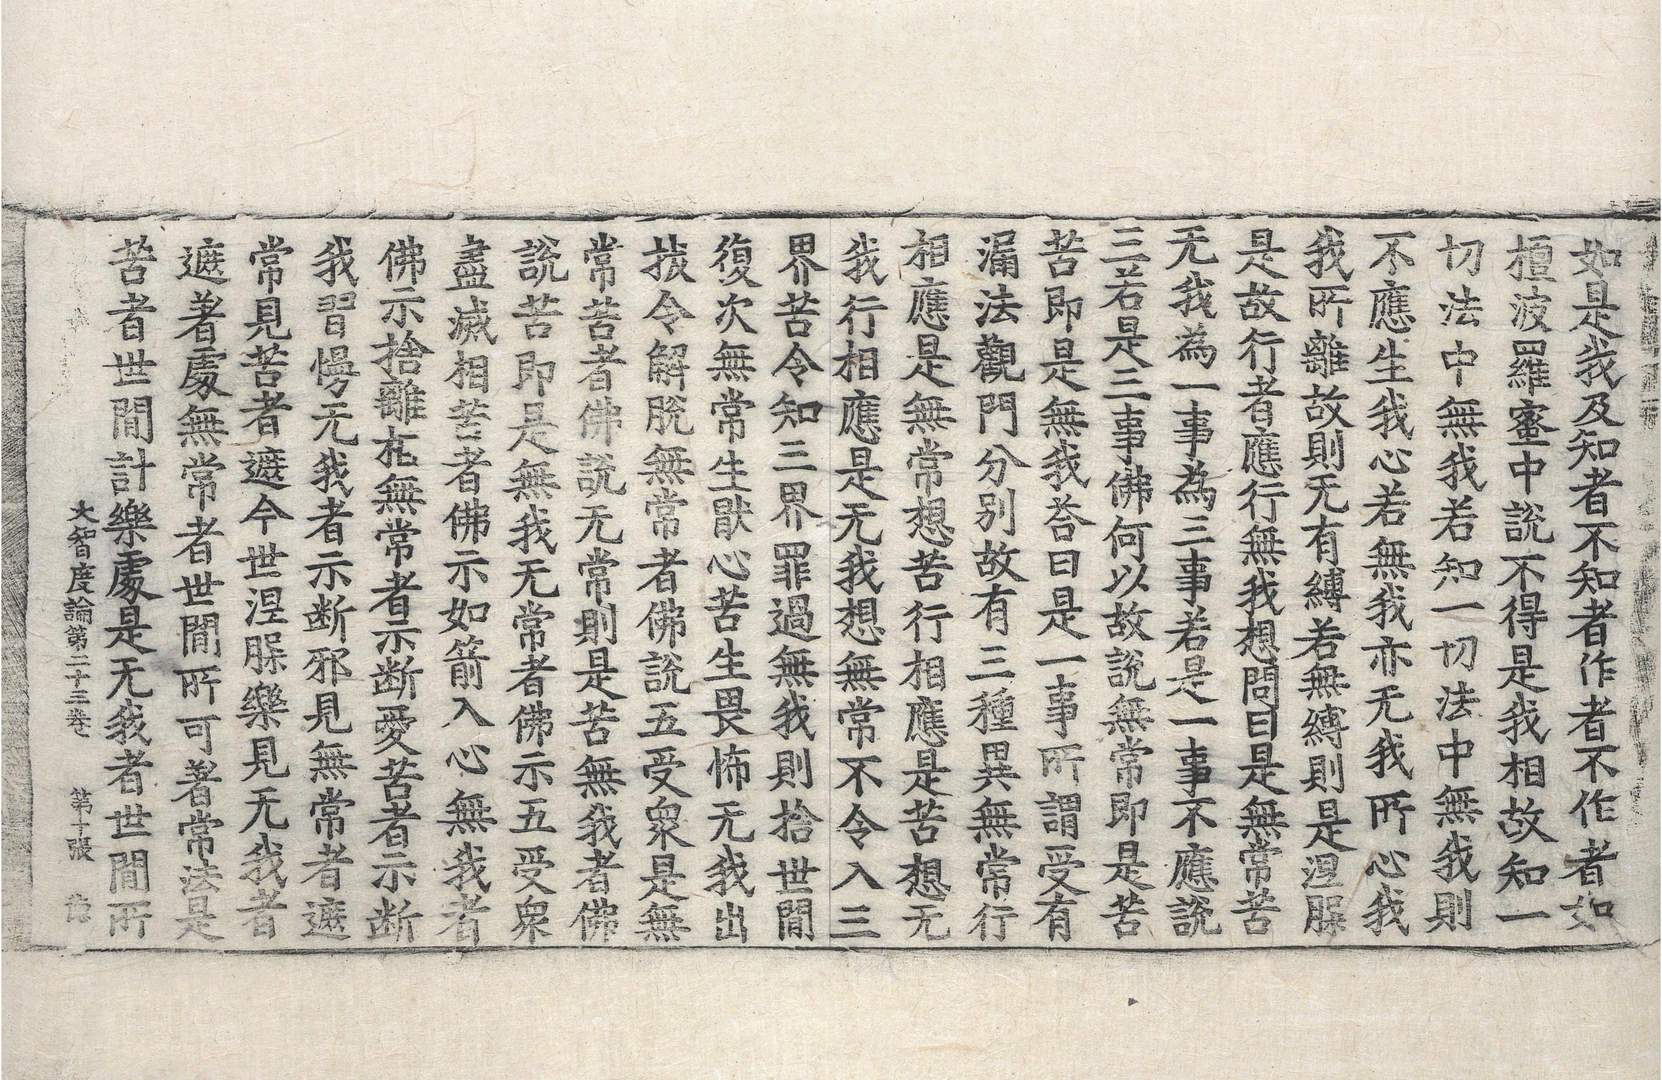 如是我及知者不知者作者不作者如
檀波羅蜜中說不得是我相故知一
切法中無我若知一切法中無我則
不應生我心若無我亦无我所心我
我所離故則无有縛若無縛則是涅脲
是故行者應行無我想問曰是無常苦
无我為一事為三事若是一事不應說
三若是三事佛何以故說無常即是苦
苦即是無我荅曰是一事所謂受有
漏法觀門分別故有三種異無常行
相應是無常想苦行相應是苦想无
我行相應是无我想無常不令入三
界苦令知三界罪過無我則捨世間
復次無常生猒心苦生畏怖无我出
拔令解脫無常者佛說五受衆是無
常苦者佛說无常則是苦無我者佛
說苦即是無我无常者佛示五受衆
盡滅相苦者佛示如箭入心無我者
佛示捨離㡯無常者示断愛苦者示断
我習慢无我者示断邪見無常者遮
常見苦者遮今世涅脲樂見无我者
遮著處無常者世間所可著常法是
苦者世間計樂處是无我者世間所
大智度論第二十三卷 第十張